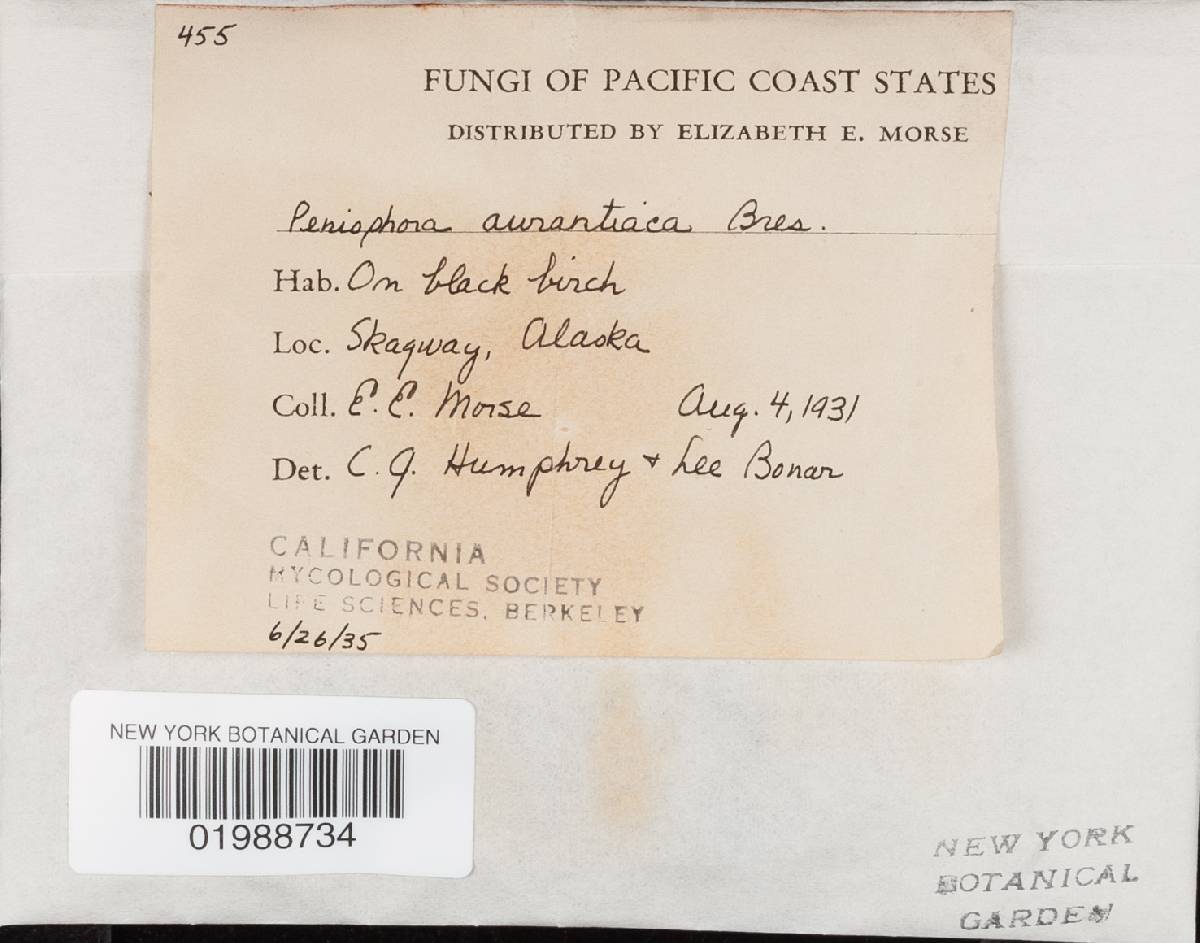 455
FUNGI OF PACIFIC COAST STATES
DISTRIBUTED BY ELIZABETH E. MORSE
Peniophora aurantiaca Bres.
Hab. On black birch
Loc. Skagway, Alaska
Coll. E. E. Morse Aug. 4, 1931
Det. C. J. Humphrey + Lee Bonar
CALIFORNIA
MYCOLOGICAL SOCIETY
LIFE SCIENCES, BERKELEY
6/26/35
NEW YORK BOTANICAL GARDEN
01988734
NEW YORK
BOTANICAL
GARDEN